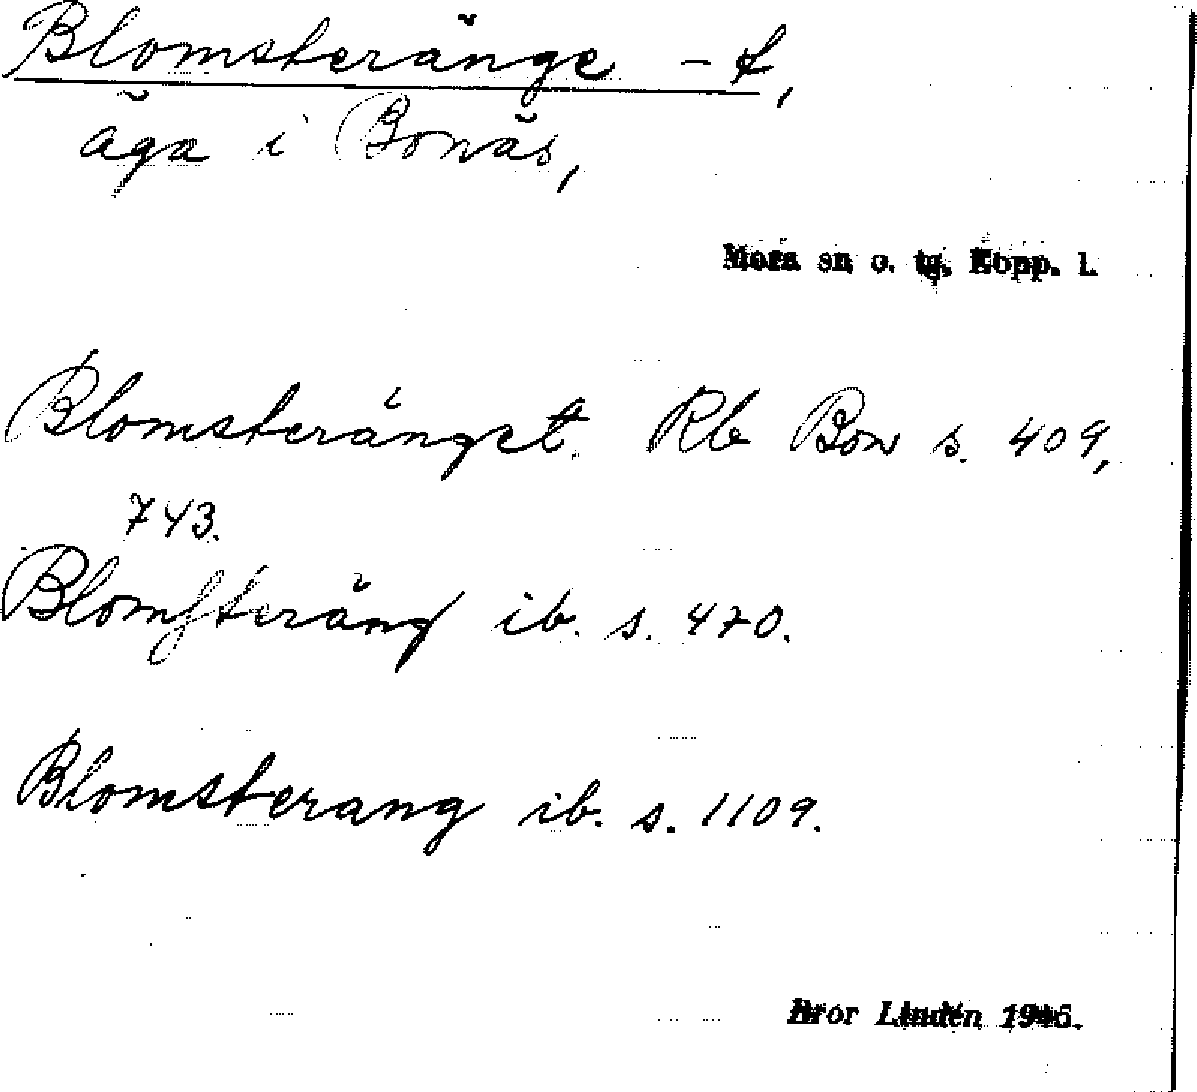 Blomsteränge -t,
äga i Bonäs,
Mora sn o. tg, Kopp. l.
Blomsteränget. Rb Bon s. 409,
743.
Blomſteräng ib. s. 470.
Blomsterang ib. s. 1109.
Bror Lindén 1946.